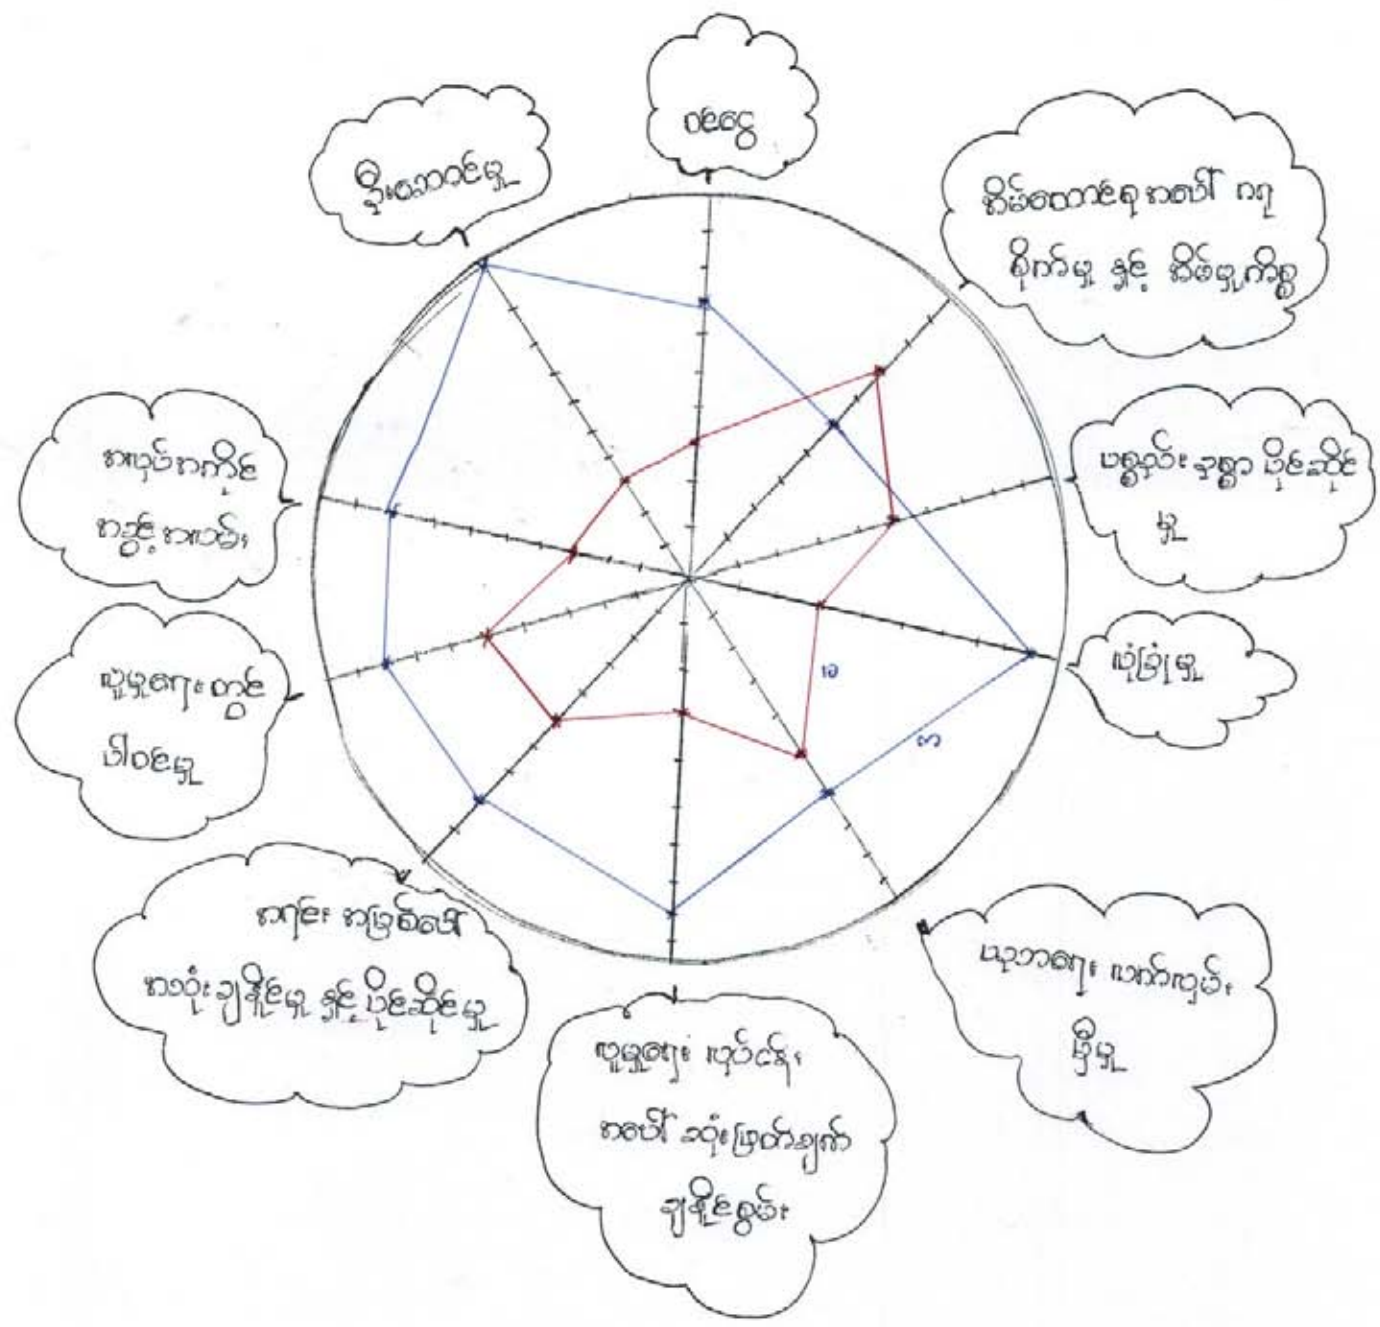 ဝင်ငွေ
ဦးဆောင်မှု
အိမ်ထောင်စု အပေါ် ဂရု
စိုက်မှု နှင့် အိမ်မှုကိစ္စ
ပစ္စည်း ဥစ္စာ ပိုင်ဆိုင်
မှု
လုံခြုံမှု
ယုဘရေး လက်လှမ်း
မှီမှု
လူမှုရေး လုပ်ငန်း
အပေါ် ဆုံးဖြတ်ချက်
ချနိုင်စွမ်း
အရင်း အမြစ်ပေါ်
အသုံးချနိုင်မှု နှင့် ပိုင်ဆိုင်မှု
လူမှုရေး တွင်
ပါဝင်မှု
အလုပ်အကိုင်
အခွင့်အလမ်း
ခ
က